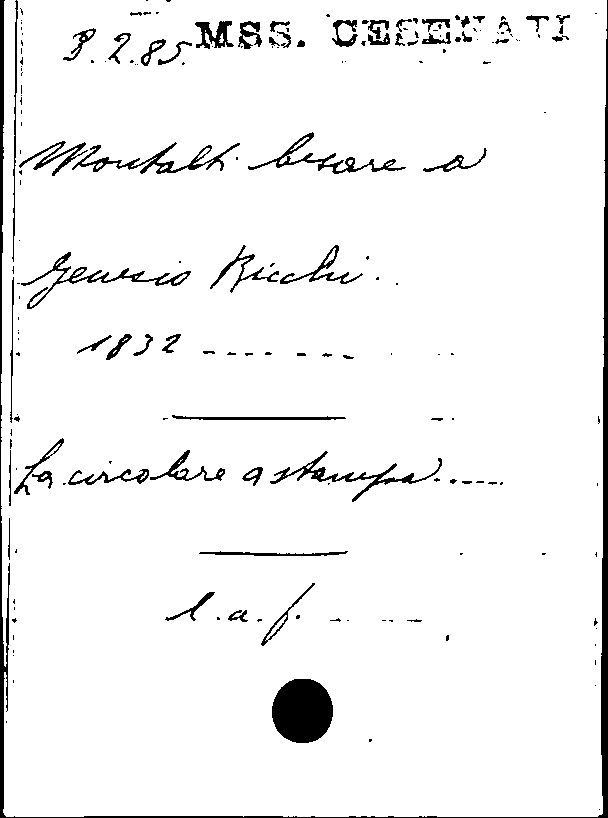 B.2.85. MSS. CESENATI
Montalti Cesare a
Genesio Ricchi.
1832 ---- ----
La circolare a stampa.----
l.a.f. ----